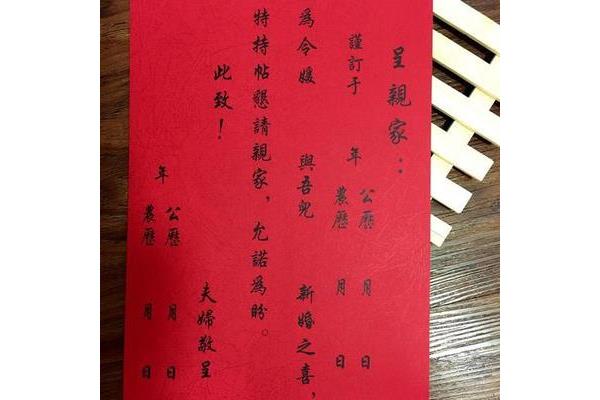 呈親家：
謹訂于 年 公歷 月 日
農歷 月 日
為令媛 與吾兒 新婚之喜，
特持帖懇請親家，尤諾為盼。
此致！
夫婦敬呈
年 公歷 月 日
農歷 月 日